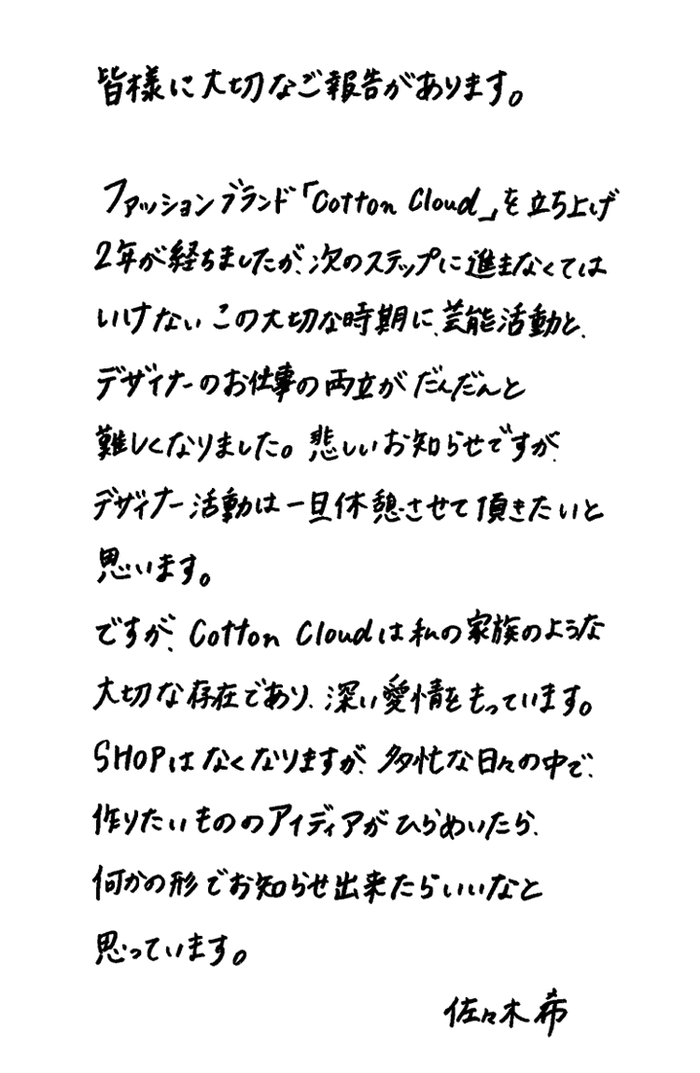 皆様に大切なご報告があります。
ファッションブランド「Cotton Cloud」を立ち上げ
2年が経ちましたが、次のステップに進まなくては
いけない この大切な時期に、芸能活動と、
デザイナーのお仕事の両立がだんだんと
難しくなりました。悲しいお知らせですが、
デザイナー活動は一旦休憩させて頂きたいと
思います。
ですが、Cotton Cloudは私の家族のような
大切な存在であり、深い愛情をもっています。
SHOPはなくなりますが、多忙な日々の中で、
作りたいもののアイディアがひらめいたら、
何かの形でお知らせ出来たらいいなと
思っています。
佐々木希